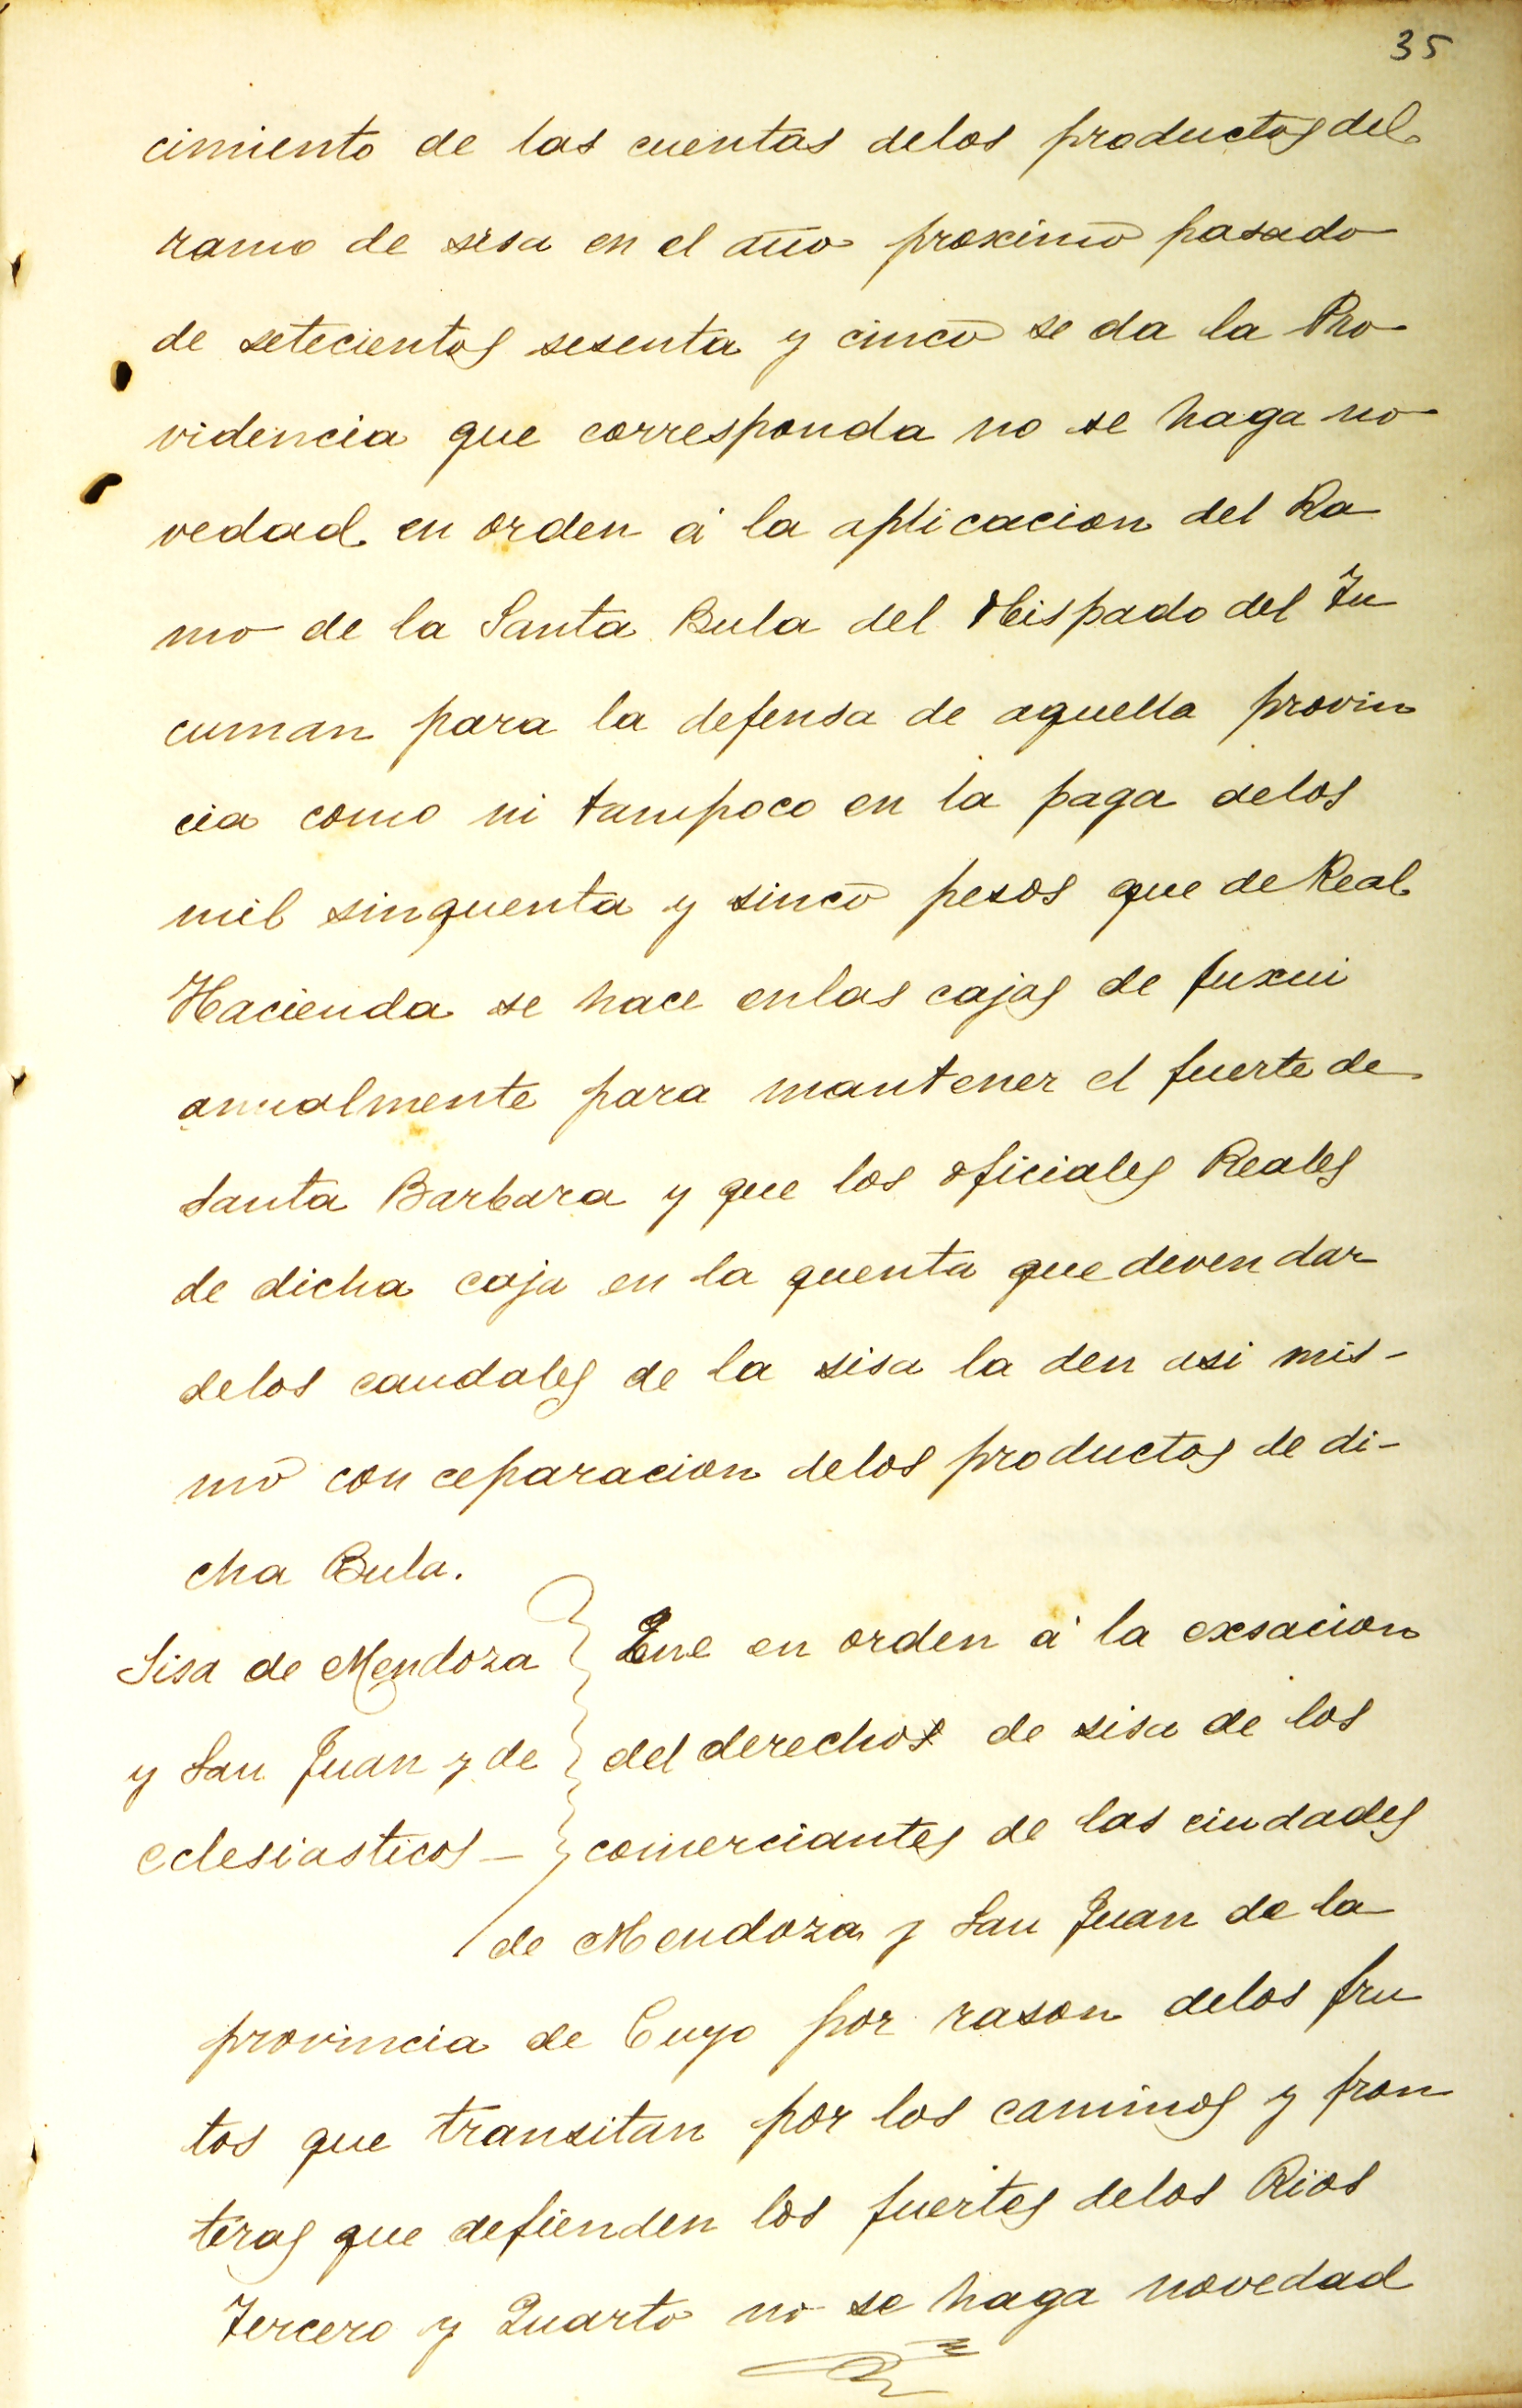 35
cimiento de las cuentas delos productos del
ramo de sisa en el año proximo pasado
de setecientos sesenta y cinco se da la Pro
videncia que corresponda no se haga no
vedad en orden á la aplicacion del Ra
mo de la Santa Bula del Obispado del Tu
cuman para la defensa de aquella provin
cia como ni tampoco en la paga delos
mil sinquenta y sinco pesos que de Real
Hacienda se hace enlas cajas de Juxui
anualmente para mantener el fuerte de
Santa Barbara y que los oficiales Reales
de dicha caja en la quenta que deven dar
delos caudales de la sisa la den asi mis-
mo con ceparacion delos productos de di-
cha Bula.
Sisa de Mendoza
y San Juan y de
eclesiasticos –
Que en orden á la exsacion
del derechos de sisa de los
comerciantes de las ciudades
de Mendoza y San Juan de la
provincia de Cuyo por rason delos fru
tos que transitan por los caminos y fron
teras que defienden los fuertes delos Rios
Tercero y Quarto no se haga novedad